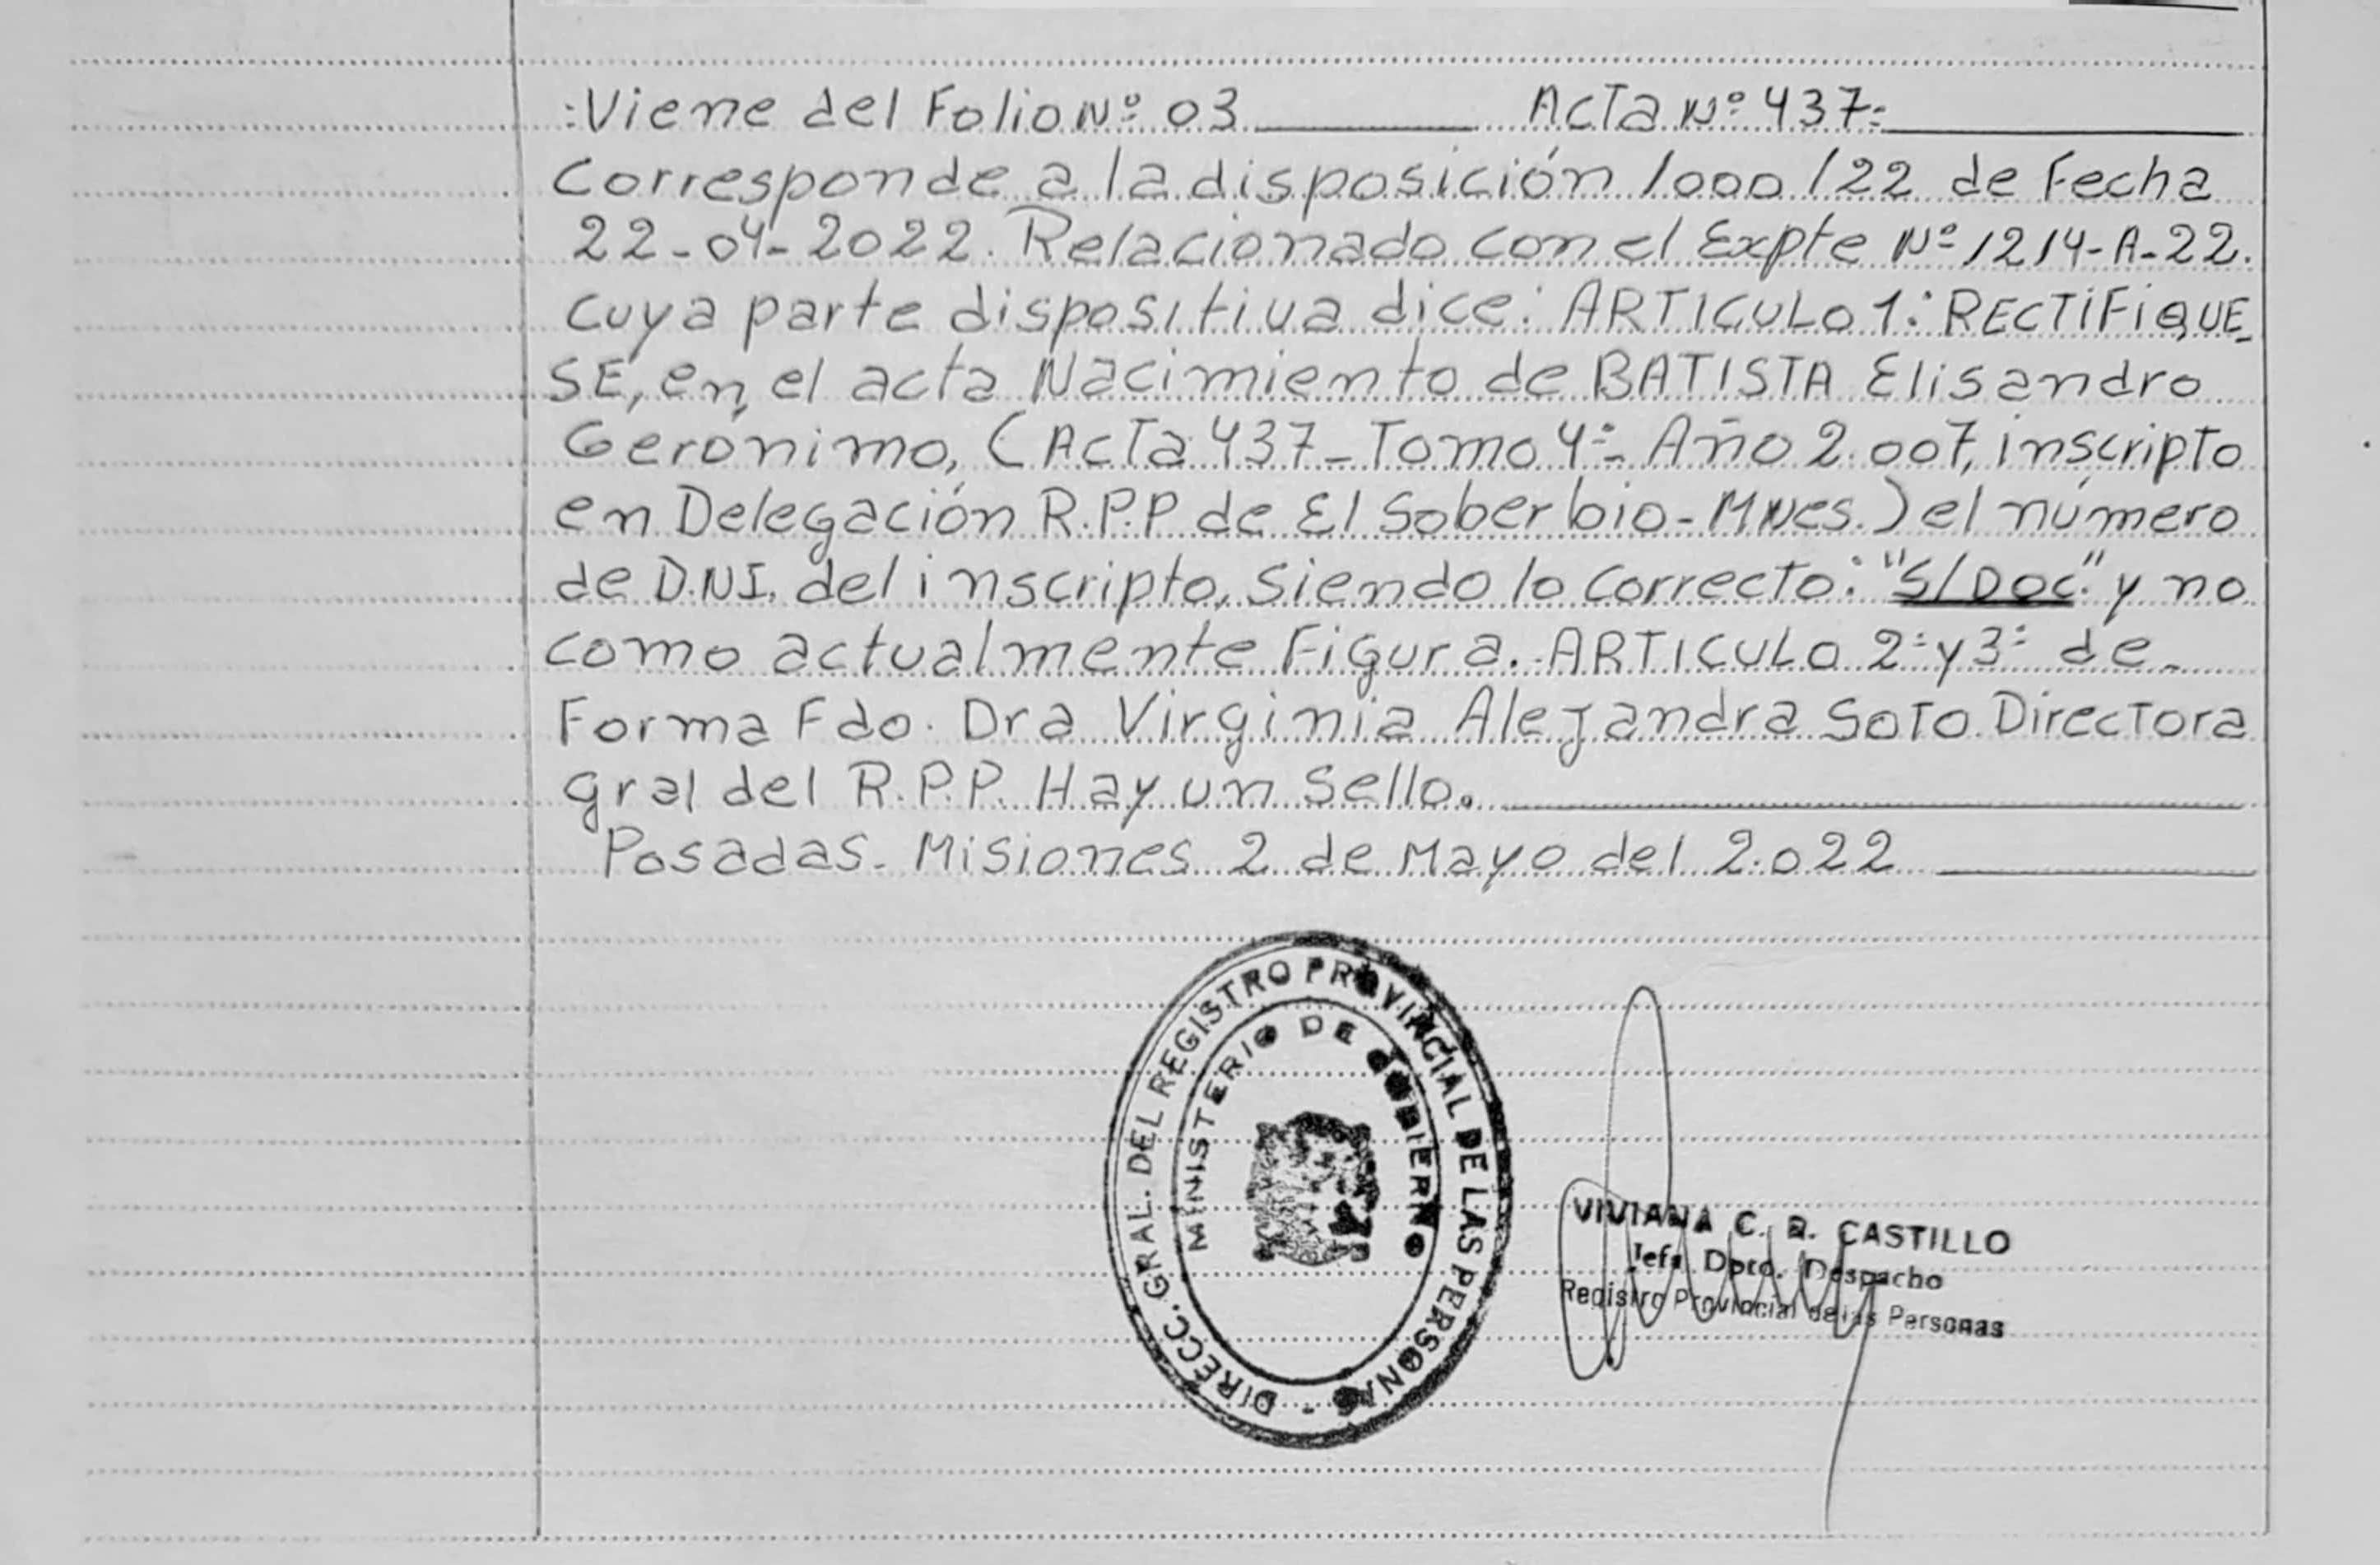 :Viene del Folio Nº 03 ACTA Nº 437=
Corresponde a la disposición 1000/22 de Fecha
22-04-2022. Relacionado con el Expte Nº 1214-A-22.
cuya parte dispositiva dice: ARTICULO 1: RECTIFIQUE_
SE, en el acta Nacimiento de BATISTA Elisandro
Gerónimo, (ACTA 437-Tomo 4º- Año 2.007, inscripto
en Delegación R.P.P de El Soberbio-MNES.) el número
de D.N.I. del inscripto, siendo lo correcto: "S/DOC" y no
como actualmente Figura. ARTICULO 2º y 3º de_
Forma Fdo. Dra Virginia Alejandra Soto Directora
gral del R.P.P. Hay un sello.
Posadas. Misiones 2 de Mayo del 2.022
DIRECC. GRAL. DEL REGISTRO PROVINCIAL DE LAS PERSONAS -
MINISTERIO DE GOBIERNO
VIVIANA C. B. CASTILLO
Jefa Dpto. Despacho
Registro Provincial de las Personas